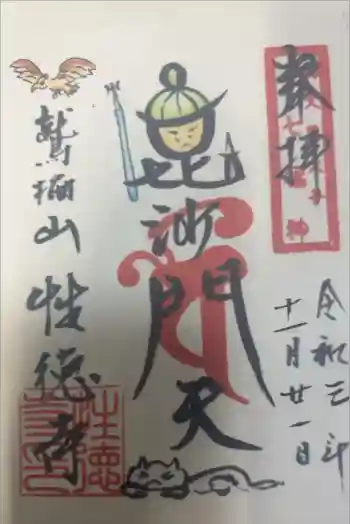 奉拝
令和三年
十一月廿一日
毘沙門天
鷲栖山
性徳寺